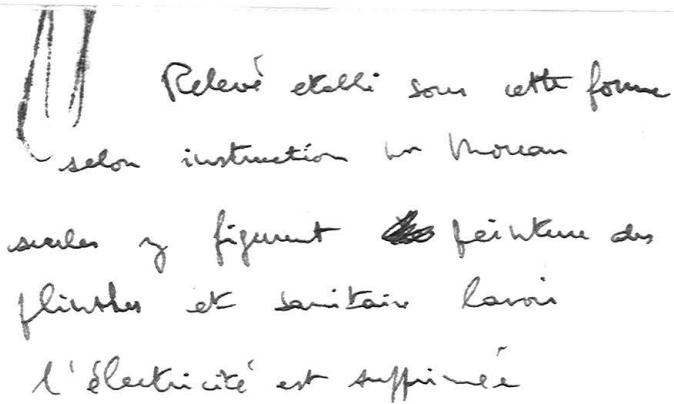 Relevé etabli sous cette forme
selon instruction Mr Moreau
seules y figurent peinture des
plinthes et sanitaire lavoir
l'électricité est supprimée